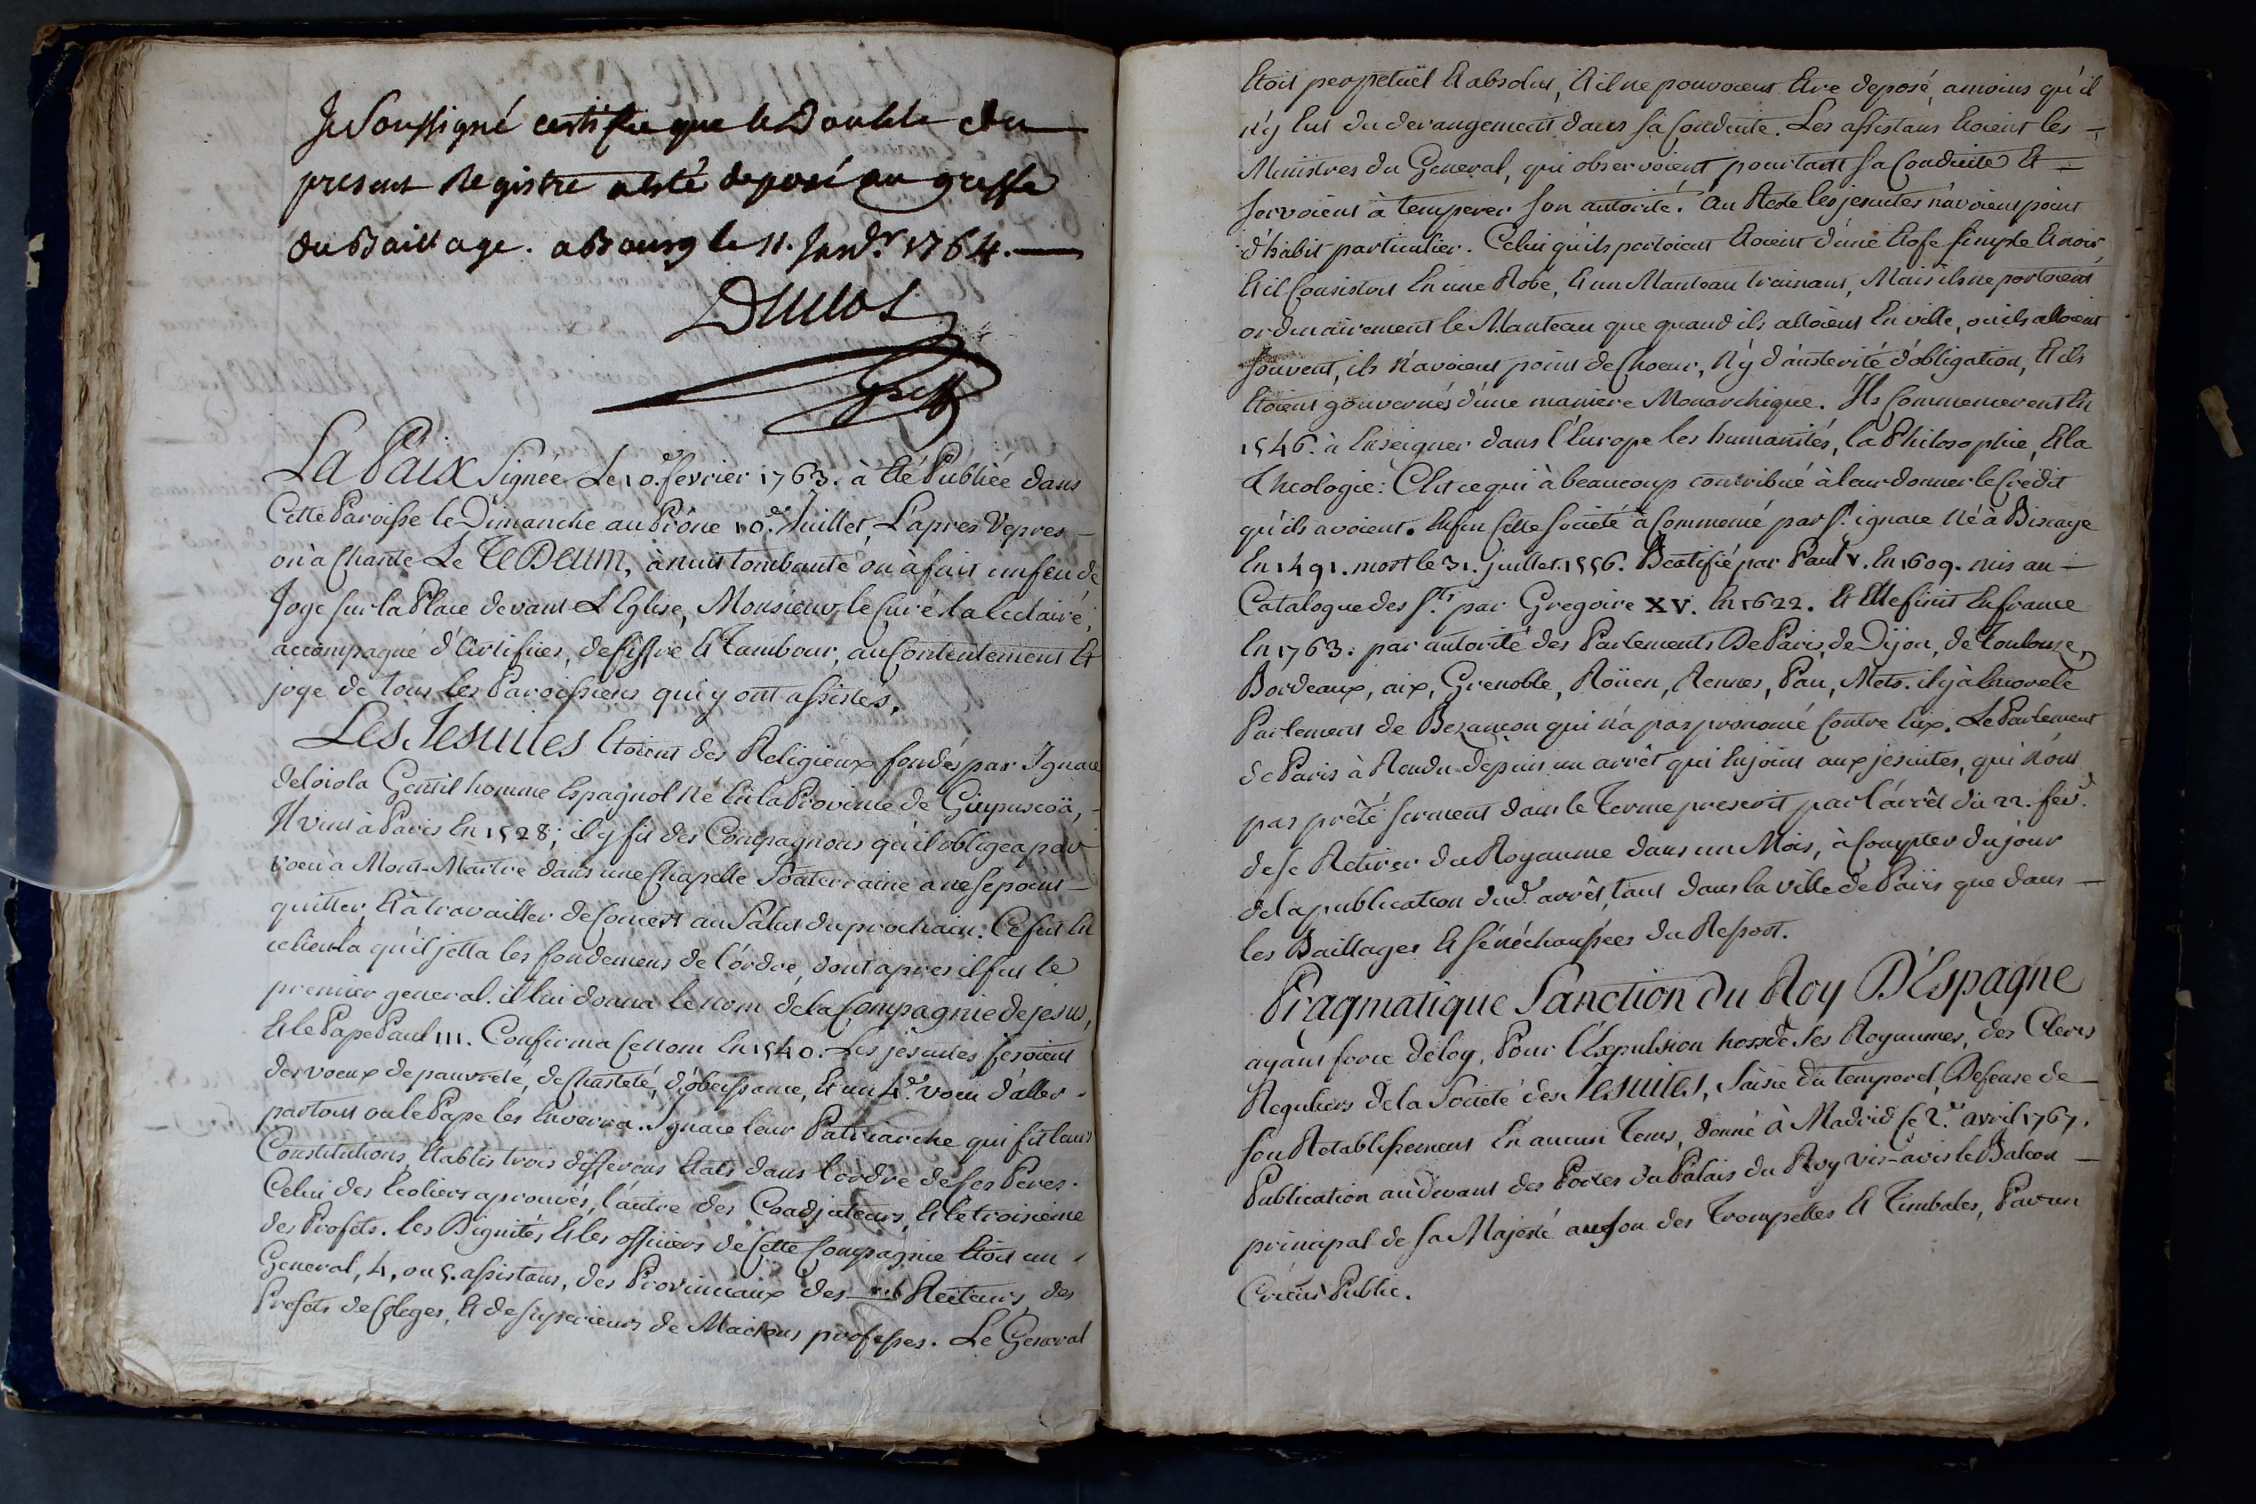 Je Soussigné certifie que le Double du
present Registre a esté deposé au greffe
du Baillage. a Bourg le 11. Janv.r 1764.
Duclos
La Paix Signée Le 10.e fevrier 1763. à Eté Publiée dans
Cette Paroisse le Dimanche au Prône 10.e Juillet, L'apres Vepres
on à Chanté Le Te Deum, à nuit tombante on à fait un feu de
Joye sur la Place devant L'Eglise, Monsieur le Curé la Eclairé,
accompagné d'Artifices, de fiffre Et Tambour, au Contentement Et
joye de tous les Paroissiens qui y ont assistés.
Les Jesuites Etoient des Religieux fondés par Ignace
de loiola Gentil homme Espagnol Né En la Province de Guipuscoä,
Il vint à Paris En 1528; il y fit des Compagnons qu'il obligea par
voeu a Mont-Martre dans une Chapelle Souterraine a ne se point
quitter, Et à travailler de Concert au Salut du prochain. Ce fut En
ce lieu la qu'il jetta les fondemens de l'ordre, dont apres il fut le
premier general. il lui donna le nom de la Compagnie de jesus,
Et le Pape Paul III. Confirma Ce nom En 1540. Les jesuites fesoient
des voeux de pauvreté, de Chasteté, d'obeissance, Et un 4.e voeu d'aller
partout ou le Pape les Enverra. Ignace leur Patriarche qui fit leurs
Constitutions, Etablit trois differens Etats dans l'ordre de ses Peres.
Celui des Ecoliers aprouvés, l'autre des Coadjuteurs, Et le troisieme
des Profets. les Dignités Et les officiers de Cette Compagnie Etoit un
General, 4, ou 5. assistans, des Provinciaux des Recteurs, des
Prefets de Coleges, Et de superieurs de Maisons professes. Le General
Etoit perpetuel Et absolut, Et il ne pouvoient Etre deposé, amoins qu'il
n'y Eut du derangement dans sa Conduite. Les assistans Etoient les
Ministres du General, qui observoient pourtant sa Conduite Et
servoient à temperer son autorité. Au Reste les jesuites n'avoient point
d'habit particulier. Celui qu'ils portoient Etoient d'une Etofe simple Et noir,
Et il Consistoit En une Robe, Et un Manteau trainant, Mais ils ne portoient
ordinairement le Manteau que quand ils alloient En ville, ou ils alloient
souvent, ils n'avoient point de Choeur, N'y d'austerité d'obligation, Et ils
Etoient gouvernés d'une maniere Monarchique. Ils Commencerent En
1546. à Enseigner dans l'Europe les humanités, la Philosophie, Et la
Theologie: C'Est ce qui à beaucoup contribué à leur donner le Crédit
qu'ils avoient. Enfin Cette Société à Commencé par S.t ignace Né à Biscaye
En 1491. mort le 31. juillet 1556. Beatifié par Paul V. En 1609. mis au
Catalogue des S.ts par Gregoire XV. En 1622. Et Elle finit En france
En 1763. par autorité des Parlements De Paris, de Dijon, de toulouse,
Bordeaux, aix, Grenoble, Roüen, Rennes, Pau, Mets. il y à Encore le
Parlement de Bezançon qui n'a pas prononcé Contre Eux. Le Parlement
de Paris à Rendu depuis un arrêt qui Enjoint aux jesuites, qui n'ont
pas prêté serment dans le Terme prescrit par l'arrêt du 22. fev.r
de se Retirer du Royaume dans un Mois, à Compter du jour
de la publication dud.t arrêt, tant dans la ville de Paris que dans
les Baillages Et Sénéchaussées du Resort.
Pragmatique Sanction du Roy D'Espagne
ayant force de loy, Pour l'Expulsion hors de Ses Royaumes, des Clercs
Reguliers de la Société des Jesuites, Saisie du temporel, Defense de
son Retablissement En aucun Tems, donné à Madrid le 2.e avril 1767.
Publication au devant des Portes du Palais du Roy vis-à-vis le Balcon
principal de sa Majesté au son des Trompettes Et Timbales, Par un
Crieur Public.